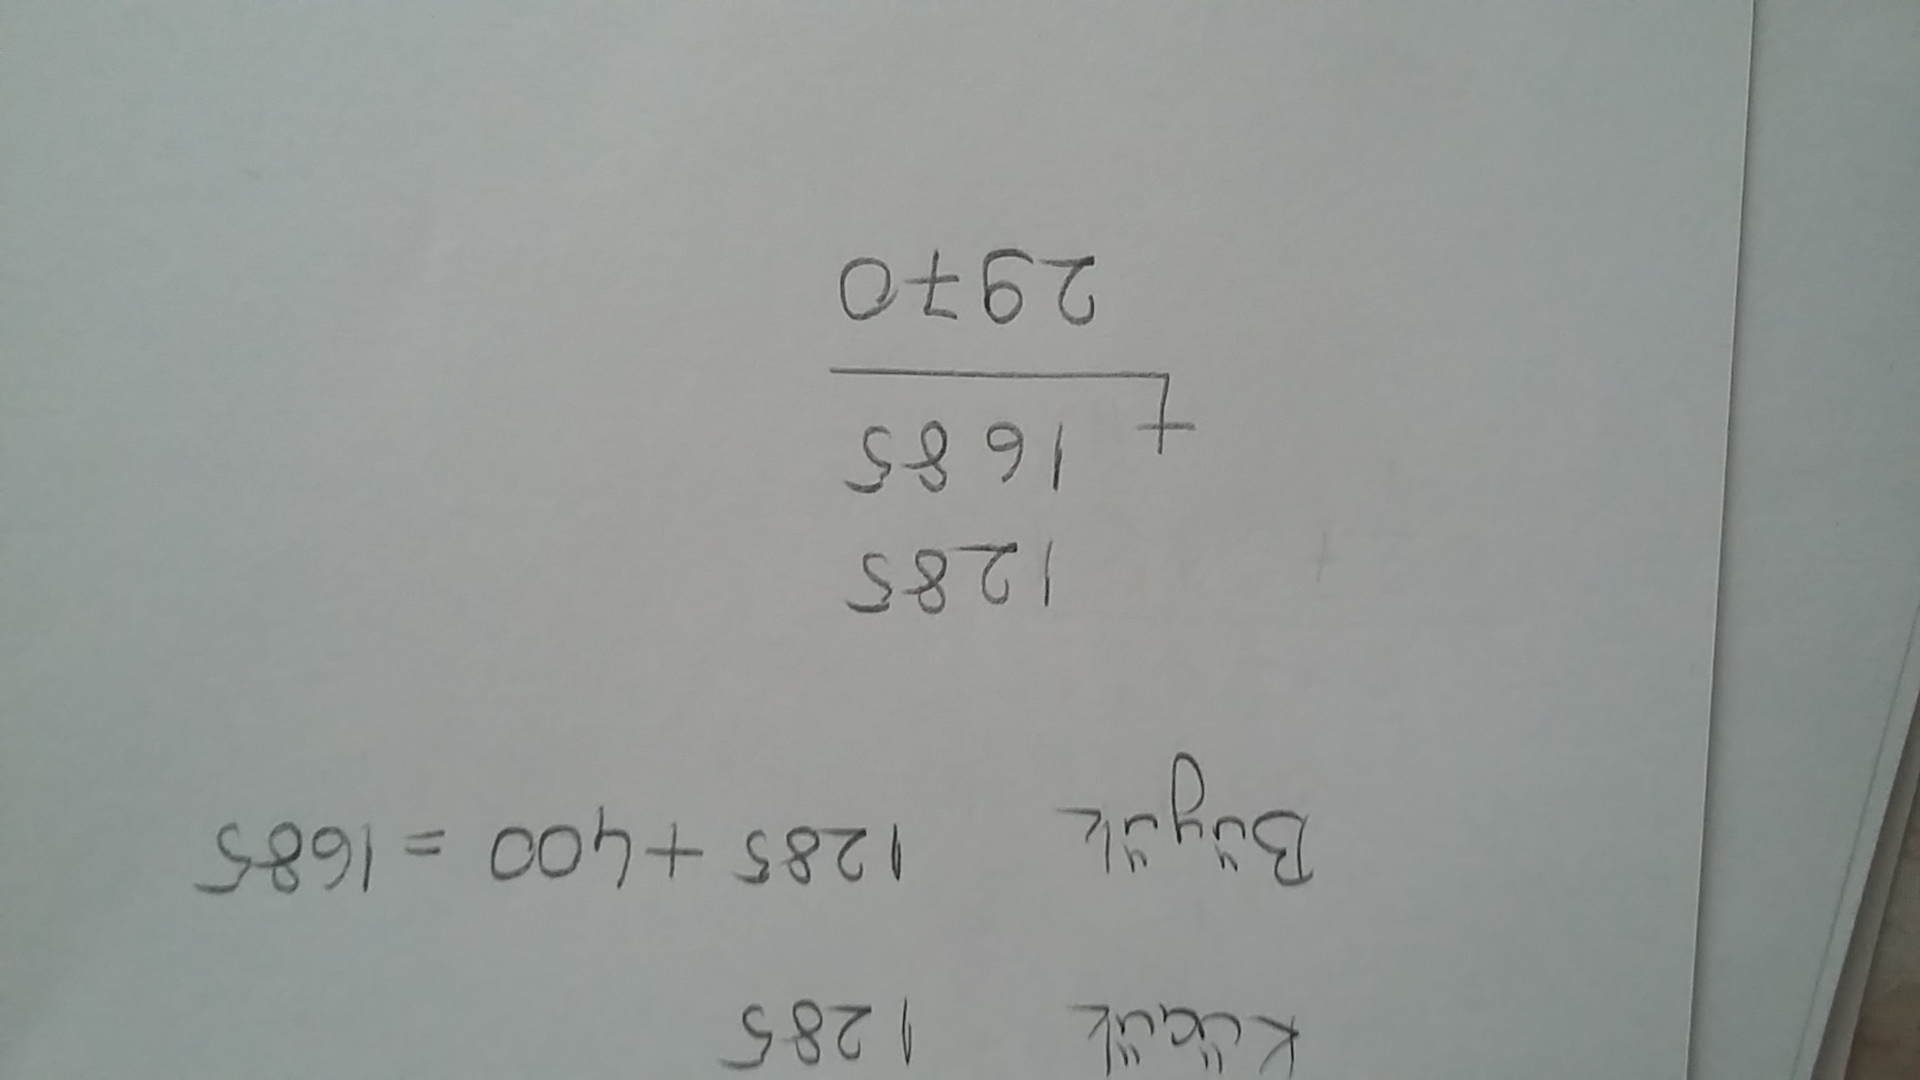 Küçük 1285
Büyük 1285 + 400 = 1685
1285
1685
+
2970